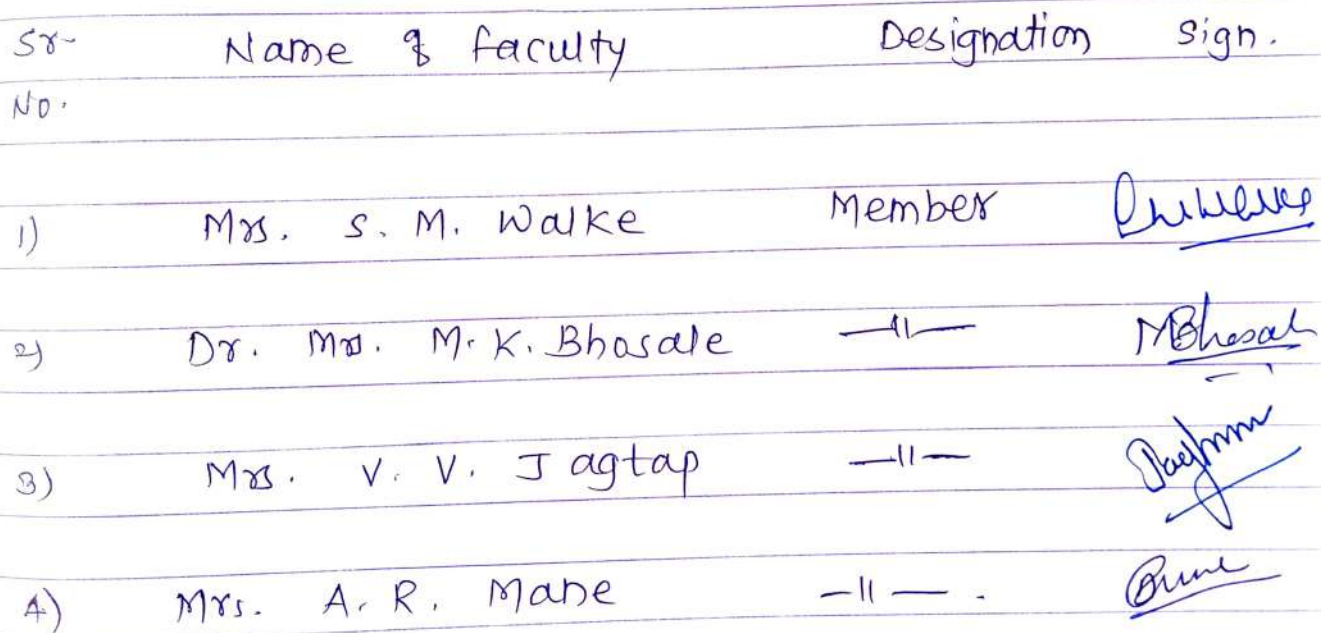 Sr- Name of faculty Designation Sign.
No.
1) Mrs. S. M. Walke Member
2) Dr. Mrs. M. K. Bhosale —11— MBhosale
3) Mrs. V. V. Jagtap —11—
4) Mrs. A. R. Mane —11—.